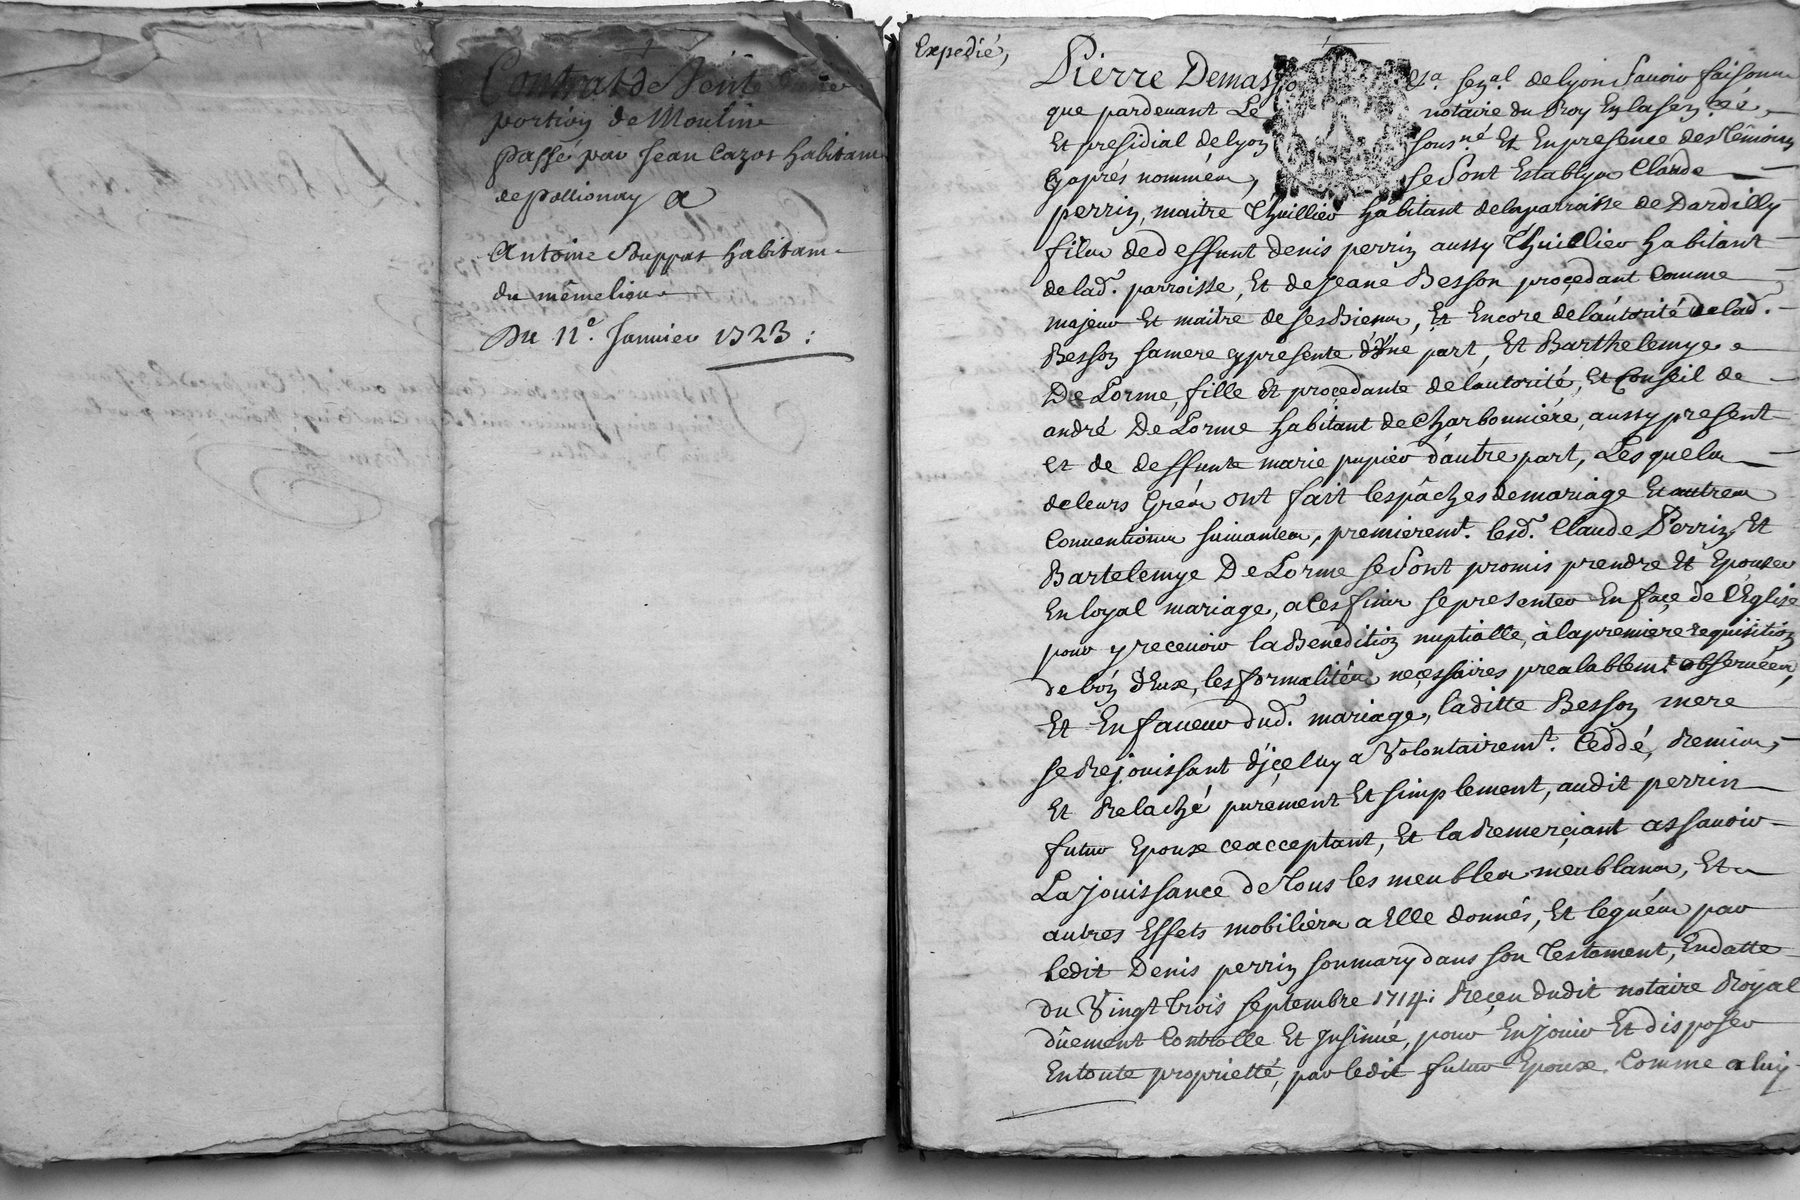 Contrat de Vente
portion de Moulin
passé par Jean Cazot habitant
de pollionay a
Antoine Souppat habitant
du même lieu
Du 11e. Janvier 1723 :
Expedié,
Pierre Demas sen.al de lyon Savoir faisons
que pardevant Le notaire du Roy En la sen.cée
Et presidial de lyon sous.né Et En presence des temoins
Cy aprés nommés, se Sont Establys Claude
perrin, maitre Thuillier habitant de la parroisse de Dardilly
fils de deffunt denis perrin aussy Thuillier habitant
de lad. parroisse, Et de Jeane Besson proçedant Comme
majeur Et maitre de ses Biens, Et Encore de l'autorité de lad.
Besson sa mere cy presente d'Vne part, Et Barthelemye
De Lorme, fille Et procedante de l'autorité, Et Conseil de
andré De Lorme habitant de Charbonniére, aussy present
et de deffunte marie pupier d'autre part, Lesquels
de leurs Gréés ont fait les pâches de mariage Et autres
Conventions suivantes, premierem.t lesd. Claude Perrin Et
Bartelemye De Lorme se Sont promis prendre Et Epouser
En loyal mariage, a ces fins se presenter En façe de l'Eglise
pour y recevoir la Benedition nuptialle, à la premiere requisition
de l'Vn d'Eux, les formalités neçessaires prealablem.t observées,
Et En faveur dud. mariage, laditte Besson mere
se Rejouissant d'jçeluy a Volontairem.t Ceddé, Remis,
Et Relaché purement Et simplement, audit perrin
futur Epoux ce acceptant, Et la Remerçiant assavoir
La Jouissance de Tous les meubles meublans, Et
autres Effets mobiliers a Elle donnés, Et legués par
ledit Denis perrin son mary dans son Testament, En datte
du Vingt trois septembre 1714 : Reçeu dudit notaire Royal
dûement Controlle Et Insinué, pour En jouir Et disposer
En toute proprietté, par ledit futur Epoux Comme a luy